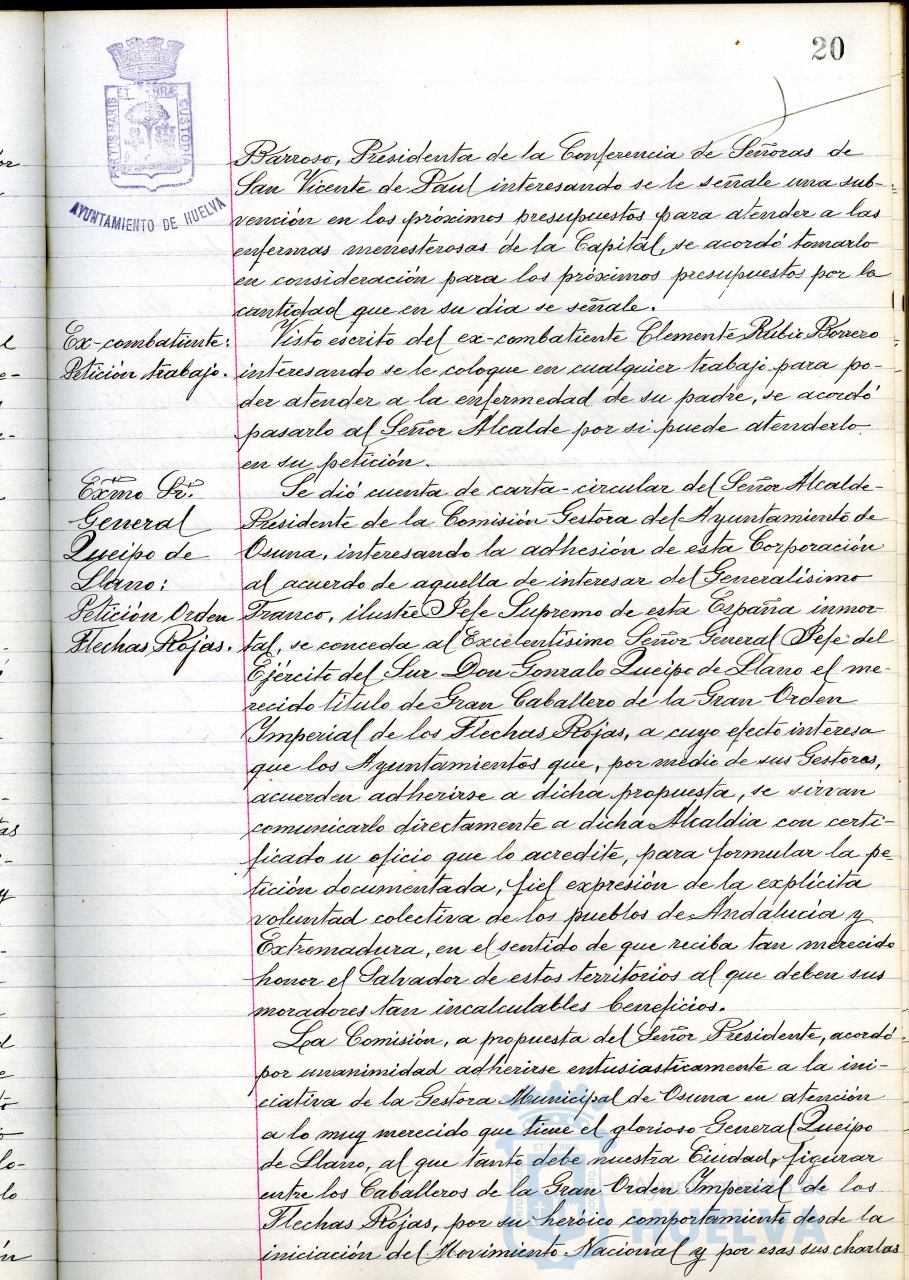 20
PORTUS MARIS ET TERRÆ CUSTODIA
AYUNTAMIENTO DE HUELVA
Barroso, Presidenta de la Conferencia de Señoras de
San Vicente de Paul interesando se le señale una sub-
vención en los próximos presupuestos para atender a las
enfermas menesterosas de la Capital, se acordó tomarlo
en consideración para los próximos presupuestos por la
cantidad que en su día se señale.
Ex-combatiente:
Petición trabajo.
Visto escrito del ex-combatiente Clemente Rubio Borrero
interesando se le coloque en cualquier trabajo para po-
der atender a la enfermedad de su padre, se acordó
pasarlo al Señor Alcalde por si puede atenderlo
en su petición.
Exmo Sr.
General
Queipo de
Llano:
Petición Orden
Flechas Rojas.
Se dió cuenta de carta-circular del Señor Alcalde-
Presidente de la Comisión Gestora del Ayuntamiento de
Osuna, interesando la adhesión de esta Corporación
al acuerdo de aquella de interesar del Generalísimo
Franco, ilustre Jefe Supremo de esta España inmor-
tal, se conceda al Excelentísimo Señor General Jefe del
Ejército del Sur Don Gonzalo Queipo de Llano el me-
recido título de Gran Caballero de la Gran Orden
Imperial de los Flechas Rojas, a cuyo efecto interesa
que los Ayuntamientos que, por medio de sus Gestoras,
acuerden adherirse a dicha propuesta, se sirvan
comunicarlo directamente a dicha Alcaldía con certi-
ficado u oficio que lo acredite, para formular la pe-
tición documentada, fiel expresión de la explícita
voluntad colectiva de los pueblos de Andalucía y
Extremadura, en el sentido de que reciba tan merecido
honor el Salvador de estos territorios al que deben sus
moradores tan incalculables beneficios.
La Comisión, a propuesta del Señor Presidente, acordó
por unanimidad adherirse entusiasticamente a la ini-
ciativa de la Gestora Municipal de Osuna en atención
a lo muy merecido que tiene el glorioso General Queipo
de Llano, al que tanto debe nuestra Ciudad, figurar
entre los Caballeros de la Gran Orden Imperial de los
Flechas Rojas, por su heróico comportamiento desde la
iniciación del Movimiento Nacional y por esas sus charlas
Ayuntamiento de
HUELVA